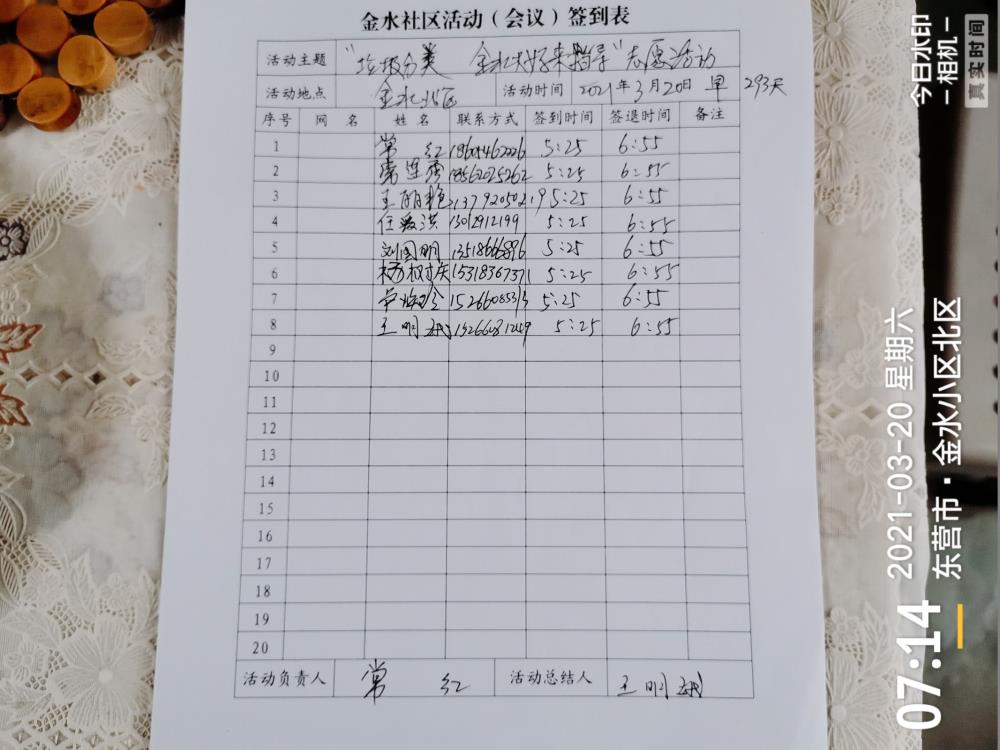 金水社区活动（会议）签到表
活动主题 "垃圾分类 金水好来指导"志愿活动
活动地点 金水北区 活动时间 2021年3月20日 早 293天
序号 网 名 姓 名 联系方式 签到时间 签退时间 备注
1 常 红 5:25 6:55
2 5:25 6:55
3 王丽艳 5:25 6:55
4 任爱洪 5:25 6:55
5 刘国明 13518666896 5:25 6:55
6 杨树庆 15318367371 5:25 6:55
7 5:25 6:55
8 王明 5:25 6:55
9
10
11
12
13
14
15
16
17
18
19
20
活动负责人 常 红 活动总结人 王明
今日水印
-相机-
真实时间
07:14
2021-03-20 星期六
东营市·金水小区北区